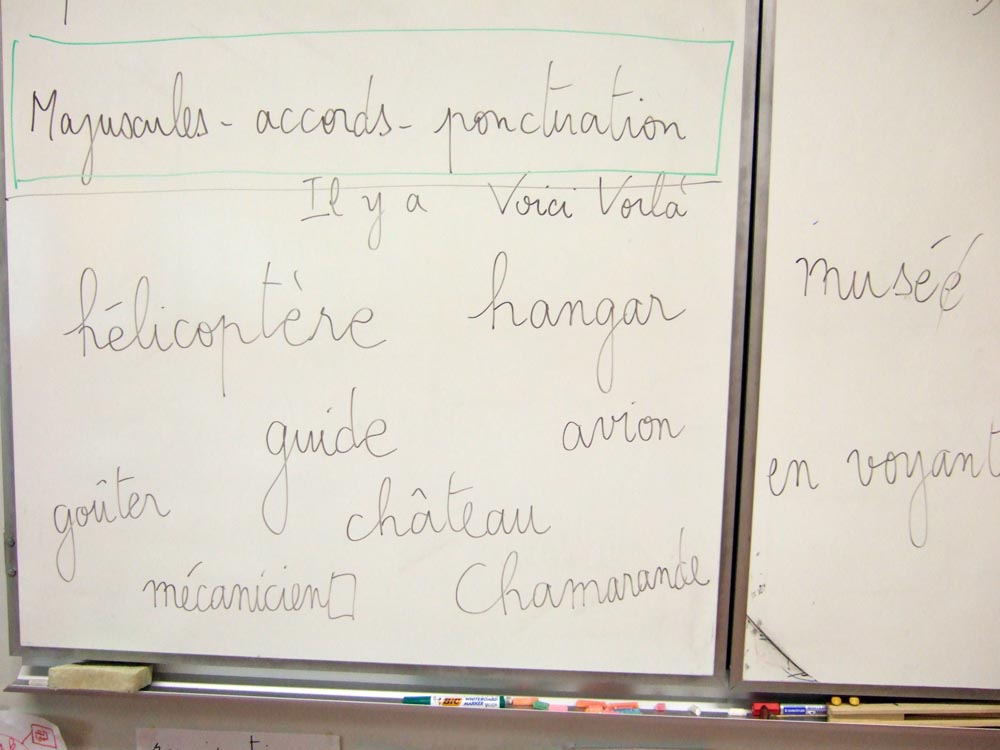 Majuscules - accords - ponctuation
Il y a Voici Voilà
hélicoptère hangar
guide avion
goûter château
mécanicien Chamarande
muséé
en voyant
BIC WHITEBOARD MARKER